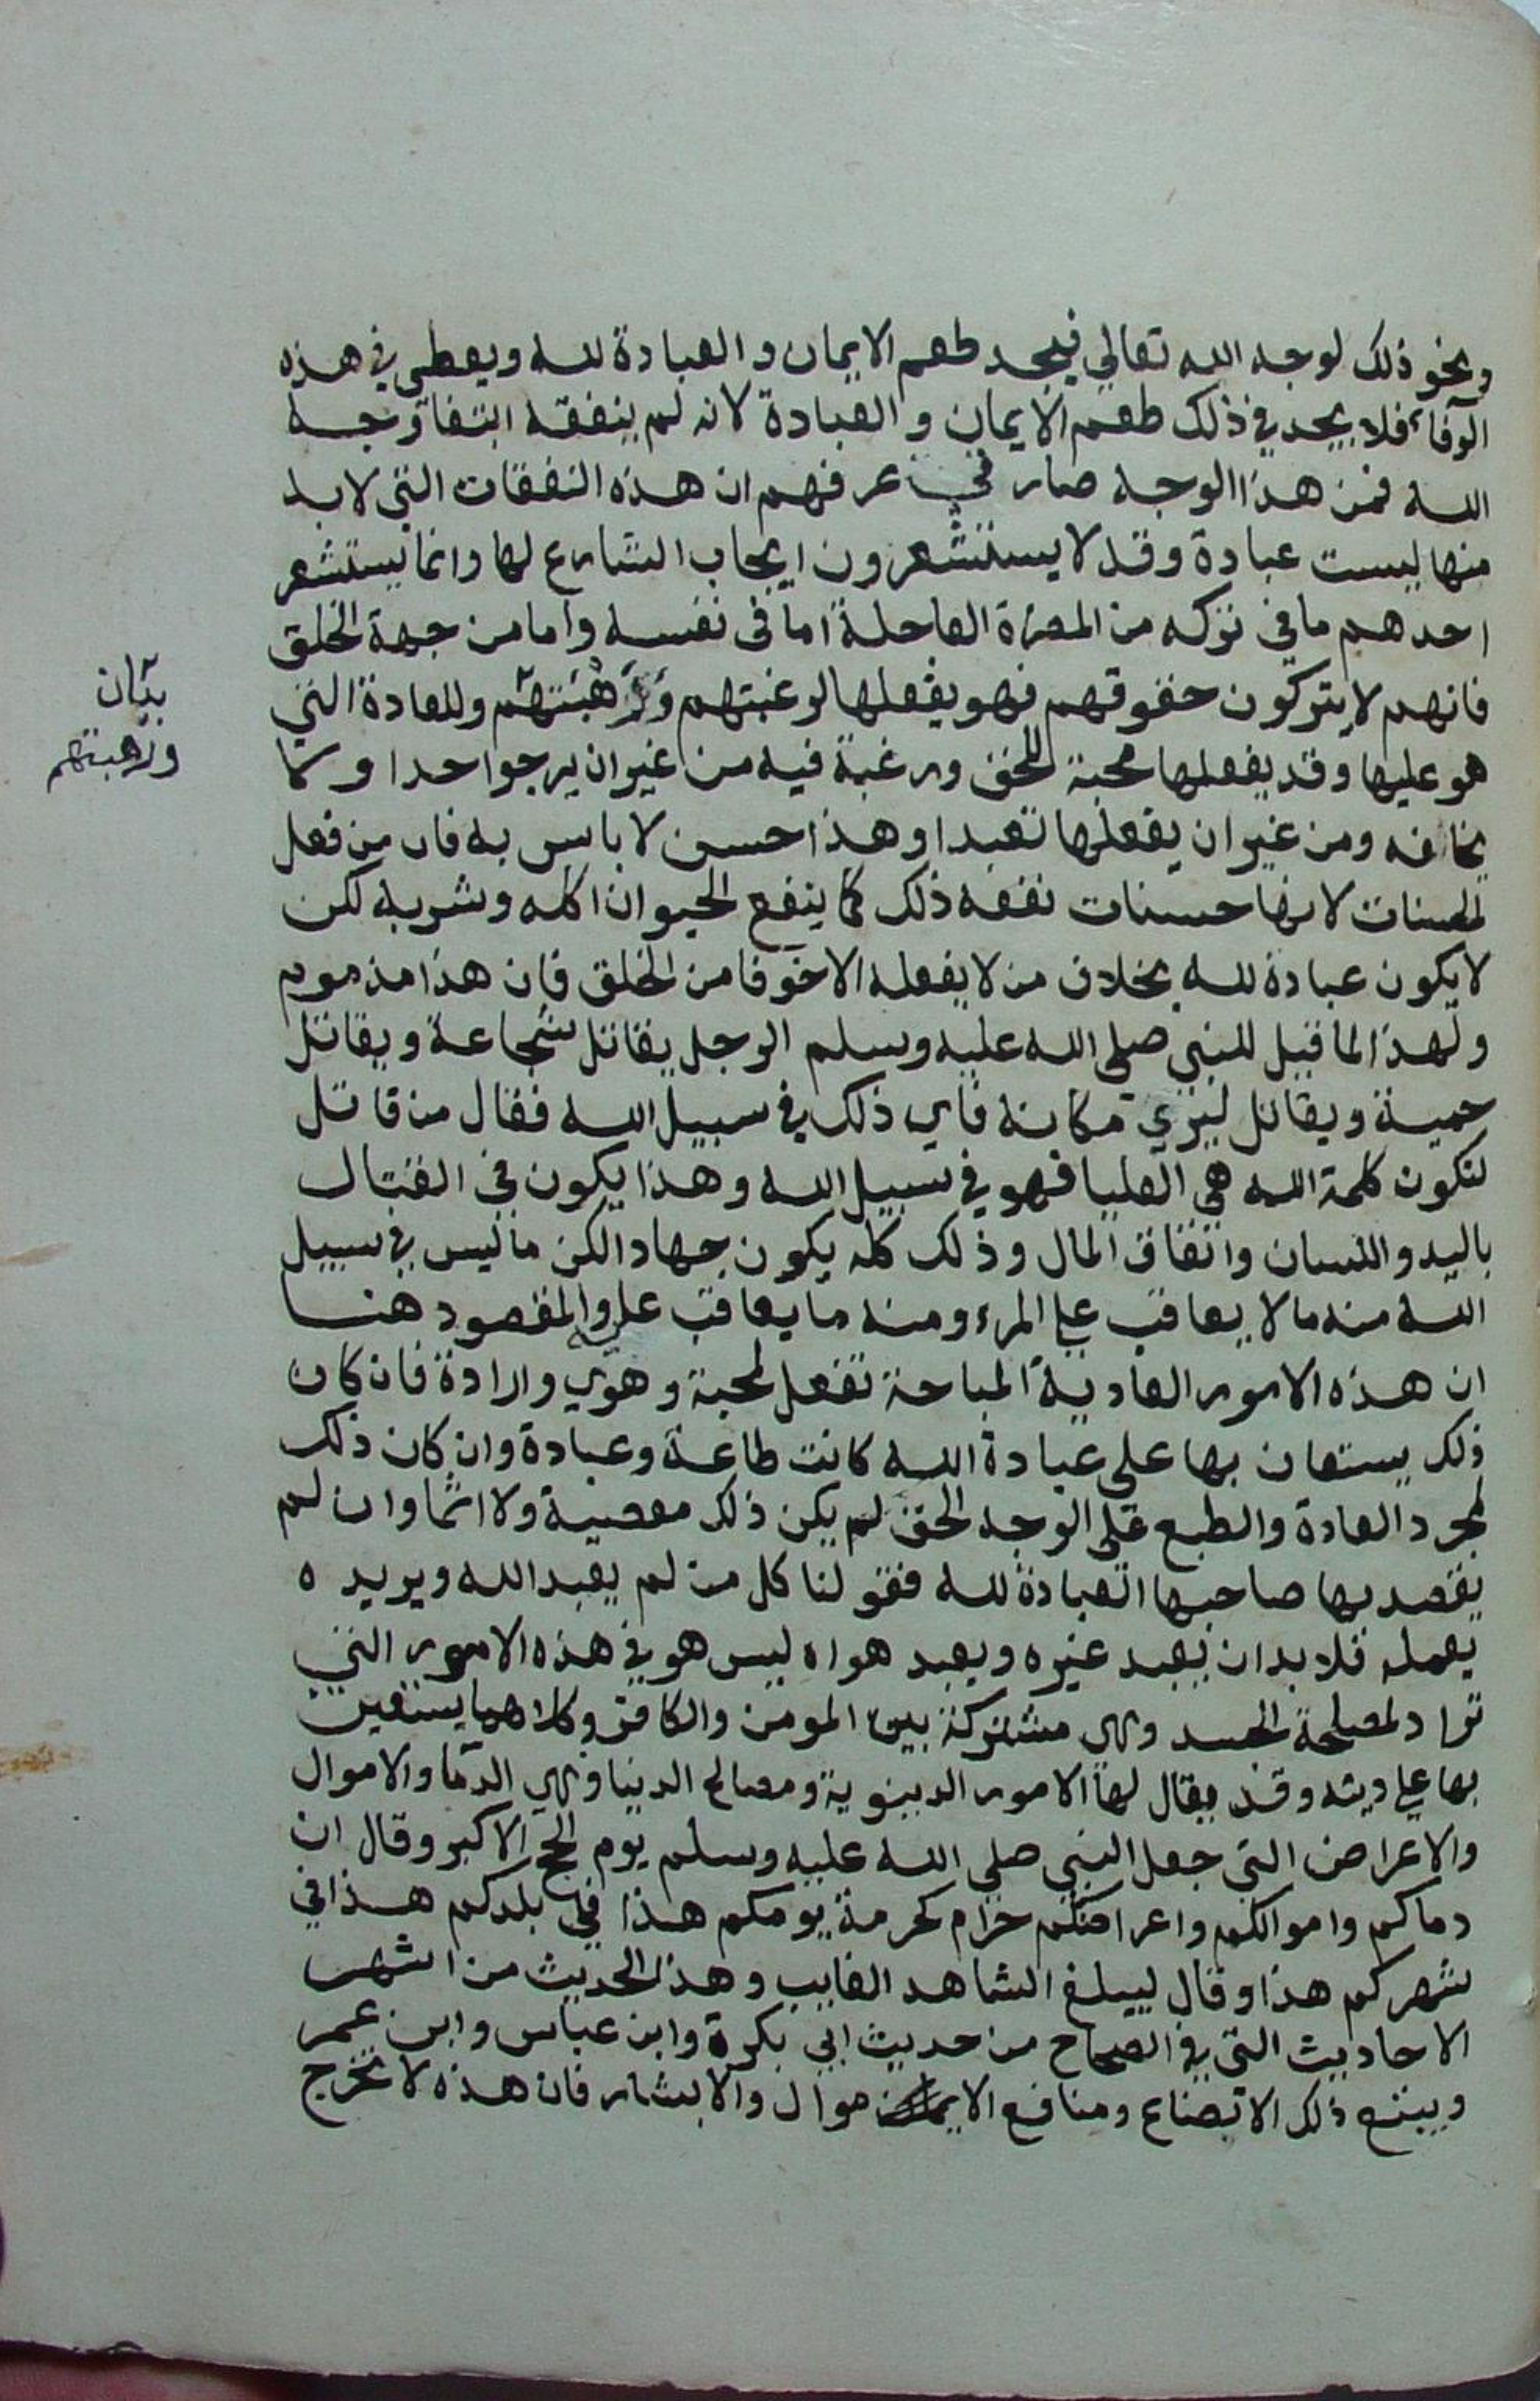 ونحو ذلك لوجه الله تعالي فيجد طعم الايمان والعبادة لله ويعطي في هذه
فلا يجد في ذلك طعم الايمان والعبادة لانه لم ينفقه ابتغا وجه
الله فمن هذا الوجه صار في عرفهم ان هذه النفقات التي لابد
منها ليست عبادة وقد لا يستشعرون ايجاب الشارع لها وانما يستشعر
احدهم ما في تركه من المضرة العاجلة اما في نفسه واما من جهة الخلق
فانهم لا يتركون حقوقهم فهو يفعلها لرغبتهم ورهبتهم وللعادة التي
بيان
ورهبتهم
هو عليها وقد يفعلها محبة للحق ورغبة فيه من غير ان يرجوا حدا و
يخافه ومن غير ان يفعلها تعبدا وهذا حسن لا باس به فان من فعل
الحسنات لانها حسنات نفعه ذلك كما ينفع الحيوان اكله وشربه لكن
لا يكون عبادة لله بخلاف من لا يفعله الا خوفا من الخلق فان هذا مذموم
ولهذا لما قيل للنبي صلى الله عليه وسلم الرجل يقاتل شجاعة ويقاتل
حمية ويقاتل ليري مكانه فاي ذلك في سبيل الله فقال من قاتل
لتكون كلمة الله هي العليا فهو في سبيل الله وهذا يكون في القتال
باليد واللسان وانفاق المال وذلك كله يكون جهادا لكن ما ليس في سبيل
الله منه ما لا يعاقب علي المرء ومنه ما يعاقب عليه والمقصود هنا
ان هذه الامور العادية المباحة تفعل لمحبة وهوي وارادة فان كان
ذلك يستعان بها على عبادة الله كانت طاعة وعبادة وان كان ذلك
لمجرد العادة والطبع على الوجه الحق لم يكن ذلك معصية ولا اثما وان لم
يقصد بها صاحبها العبادة لله فقولنا كل من لم يعبد الله ويريده
بعمله فلا بد ان يعبد غيره ويعبد هواه ليس هو في هذه الامور التي
تراد لمصلحة الجسد وهي مشتركة بين المومن والكافر وكلاهما يستعين
بها علي دينه وقد يقال لها الامور الدينوية ومصالح الدينا وهي الدما والاموال
والاعراض التي جعل النبي صلي الله عليه وسلم يوم الحج الاكبر وقال ان
دماكم واموالكم واعراضكم حرام كحرمة يومكم هذا في بلدكم هذا في
شهركم هذا وقال ليبلغ الشاهد الغايب وهذا الحديث من اشهر
الاحاديث التي في الصحاح من حديث ابي بكرة وابن عباس وابن عمر
ويتبع ذلك الابضاع ومنافع الاموال والابشار فان هذه لا تخرج